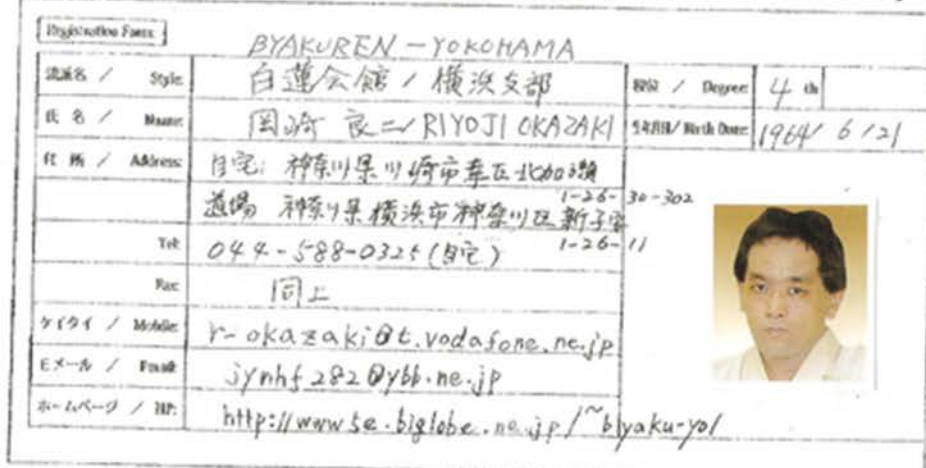 Registration Form
BYAKUREN - YOKOHAMA
流派名 / Style: 白蓮会館 / 横浜支部
段位 / Degree: 4 th
氏 名 / Name: 岡崎 良二 / RIYOJI OKAZAKI
生年月日 / Birth Date: 1964/ 6 /21
住 所 / Address: 自宅: 神奈川県川崎市幸区北加瀬
1-26-30-302
道場 神奈川県横浜市神奈川区新子安
1-26-11
Tel: 044-588-0325 (自宅)
Fax: 同上
ケイタイ / Mobile: r-okazaki@t.vodafone.ne.jp
Eメール / Email: jynhf282@ybb.ne.jp
ホームページ / HP: http://www5e.biglobe.ne.jp/~byaku-yo/